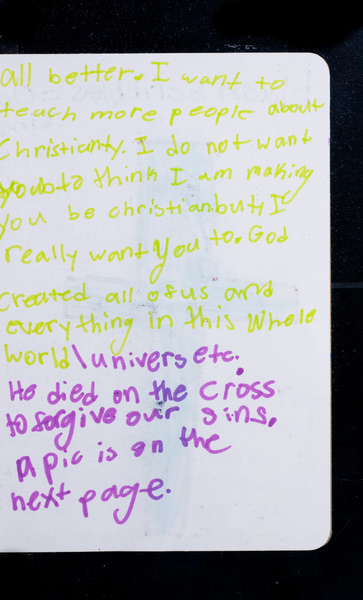 all better. I want to
teach more people about
Christianty. I do not want
you to think I am making
you be christian but, I
really want you to. God
created all of us and
everything in this whole
world\univers etc.
He died on the cross
to forgive our sins.
A pic is on the
next page.